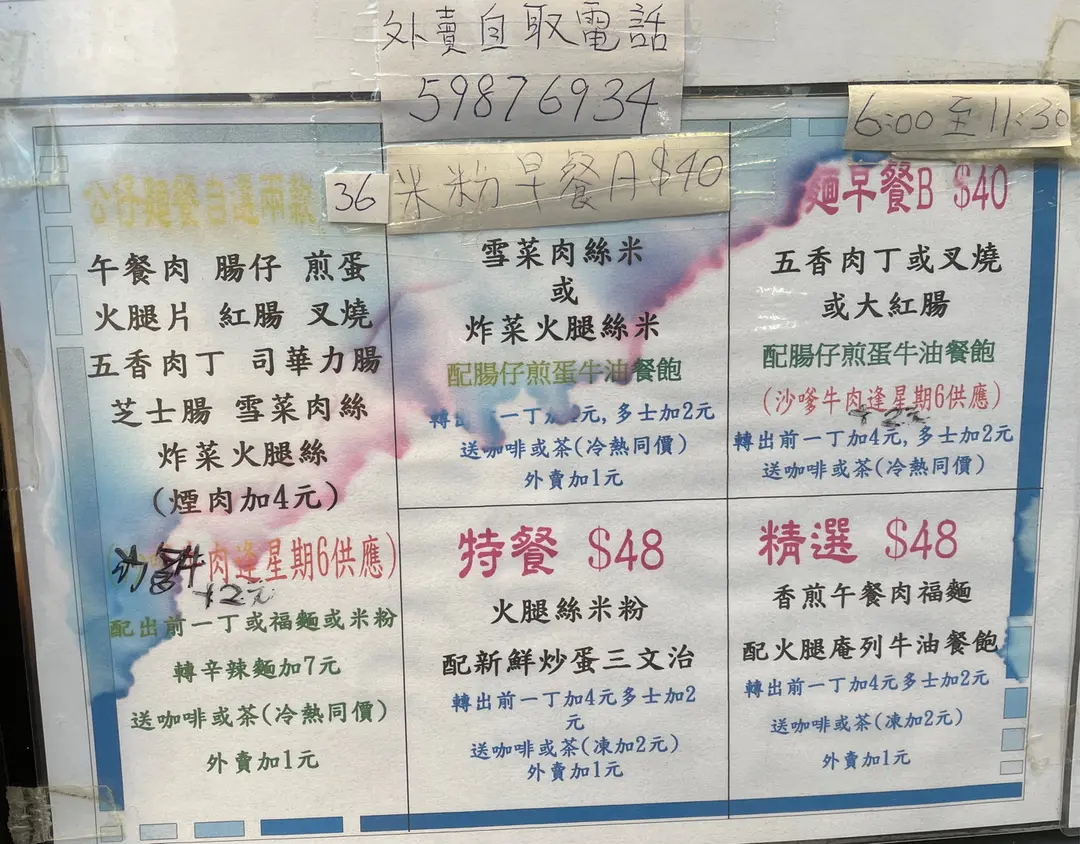 外賣自取電話
59876934
公仔麵餐自選兩款 36
午餐肉 腸仔 煎蛋
火腿片 紅腸 叉燒
五香肉丁 司華力腸
芝士腸 雪菜肉絲
炸菜火腿絲
(煙肉加4元)
沙嗲牛肉逢星期6供應)
+2元
配出前一丁或福麵或米粉
轉辛辣麵加7元
送咖啡或茶(冷熱同價)
外賣加1元
米粉早餐A $40
雪菜肉絲米
或
炸菜火腿絲米
配腸仔煎蛋牛油餐飽
轉出前一丁加元, 多士加2元
送咖啡或茶(冷熱同價)
外賣加1元
6:00至11:30
麵早餐B $40
五香肉丁或叉燒
或大紅腸
配腸仔煎蛋牛油餐飽
(沙嗲牛肉逢星期6供應)
+2元
轉出前一丁加4元, 多士加2元
送咖啡或茶(冷熱同價)
特餐 $48
火腿絲米粉
配新鮮炒蛋三文治
轉出前一丁加4元多士加2
元
送咖啡或茶(凍加2元)
外賣加1元
精選 $48
香煎午餐肉福麵
配火腿庵列牛油餐飽
轉出前一丁加4元多士加2元
送咖啡或茶(凍加2元)
外賣加1元